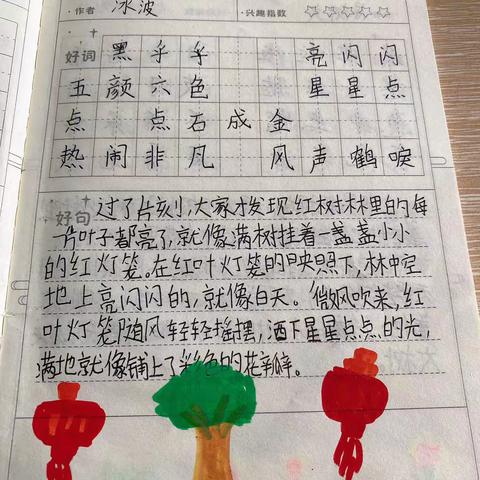 作者 冰波 兴趣指数
好词 黑乎乎 亮闪闪
五颜六色 星星点
点 点石成金
热闹非凡 风声鹤唳
好句 过了片刻,大家才发现红树林里的每
片叶子都亮了,就像满树挂着一盏盏小小
的红灯笼。在红叶灯笼的映照下,林中空
地上亮闪闪的,就像白天。微风吹来,红
叶灯笼随风轻轻摇摆,洒下星星点点的光,
满地就像铺上了彩色的花瓣。